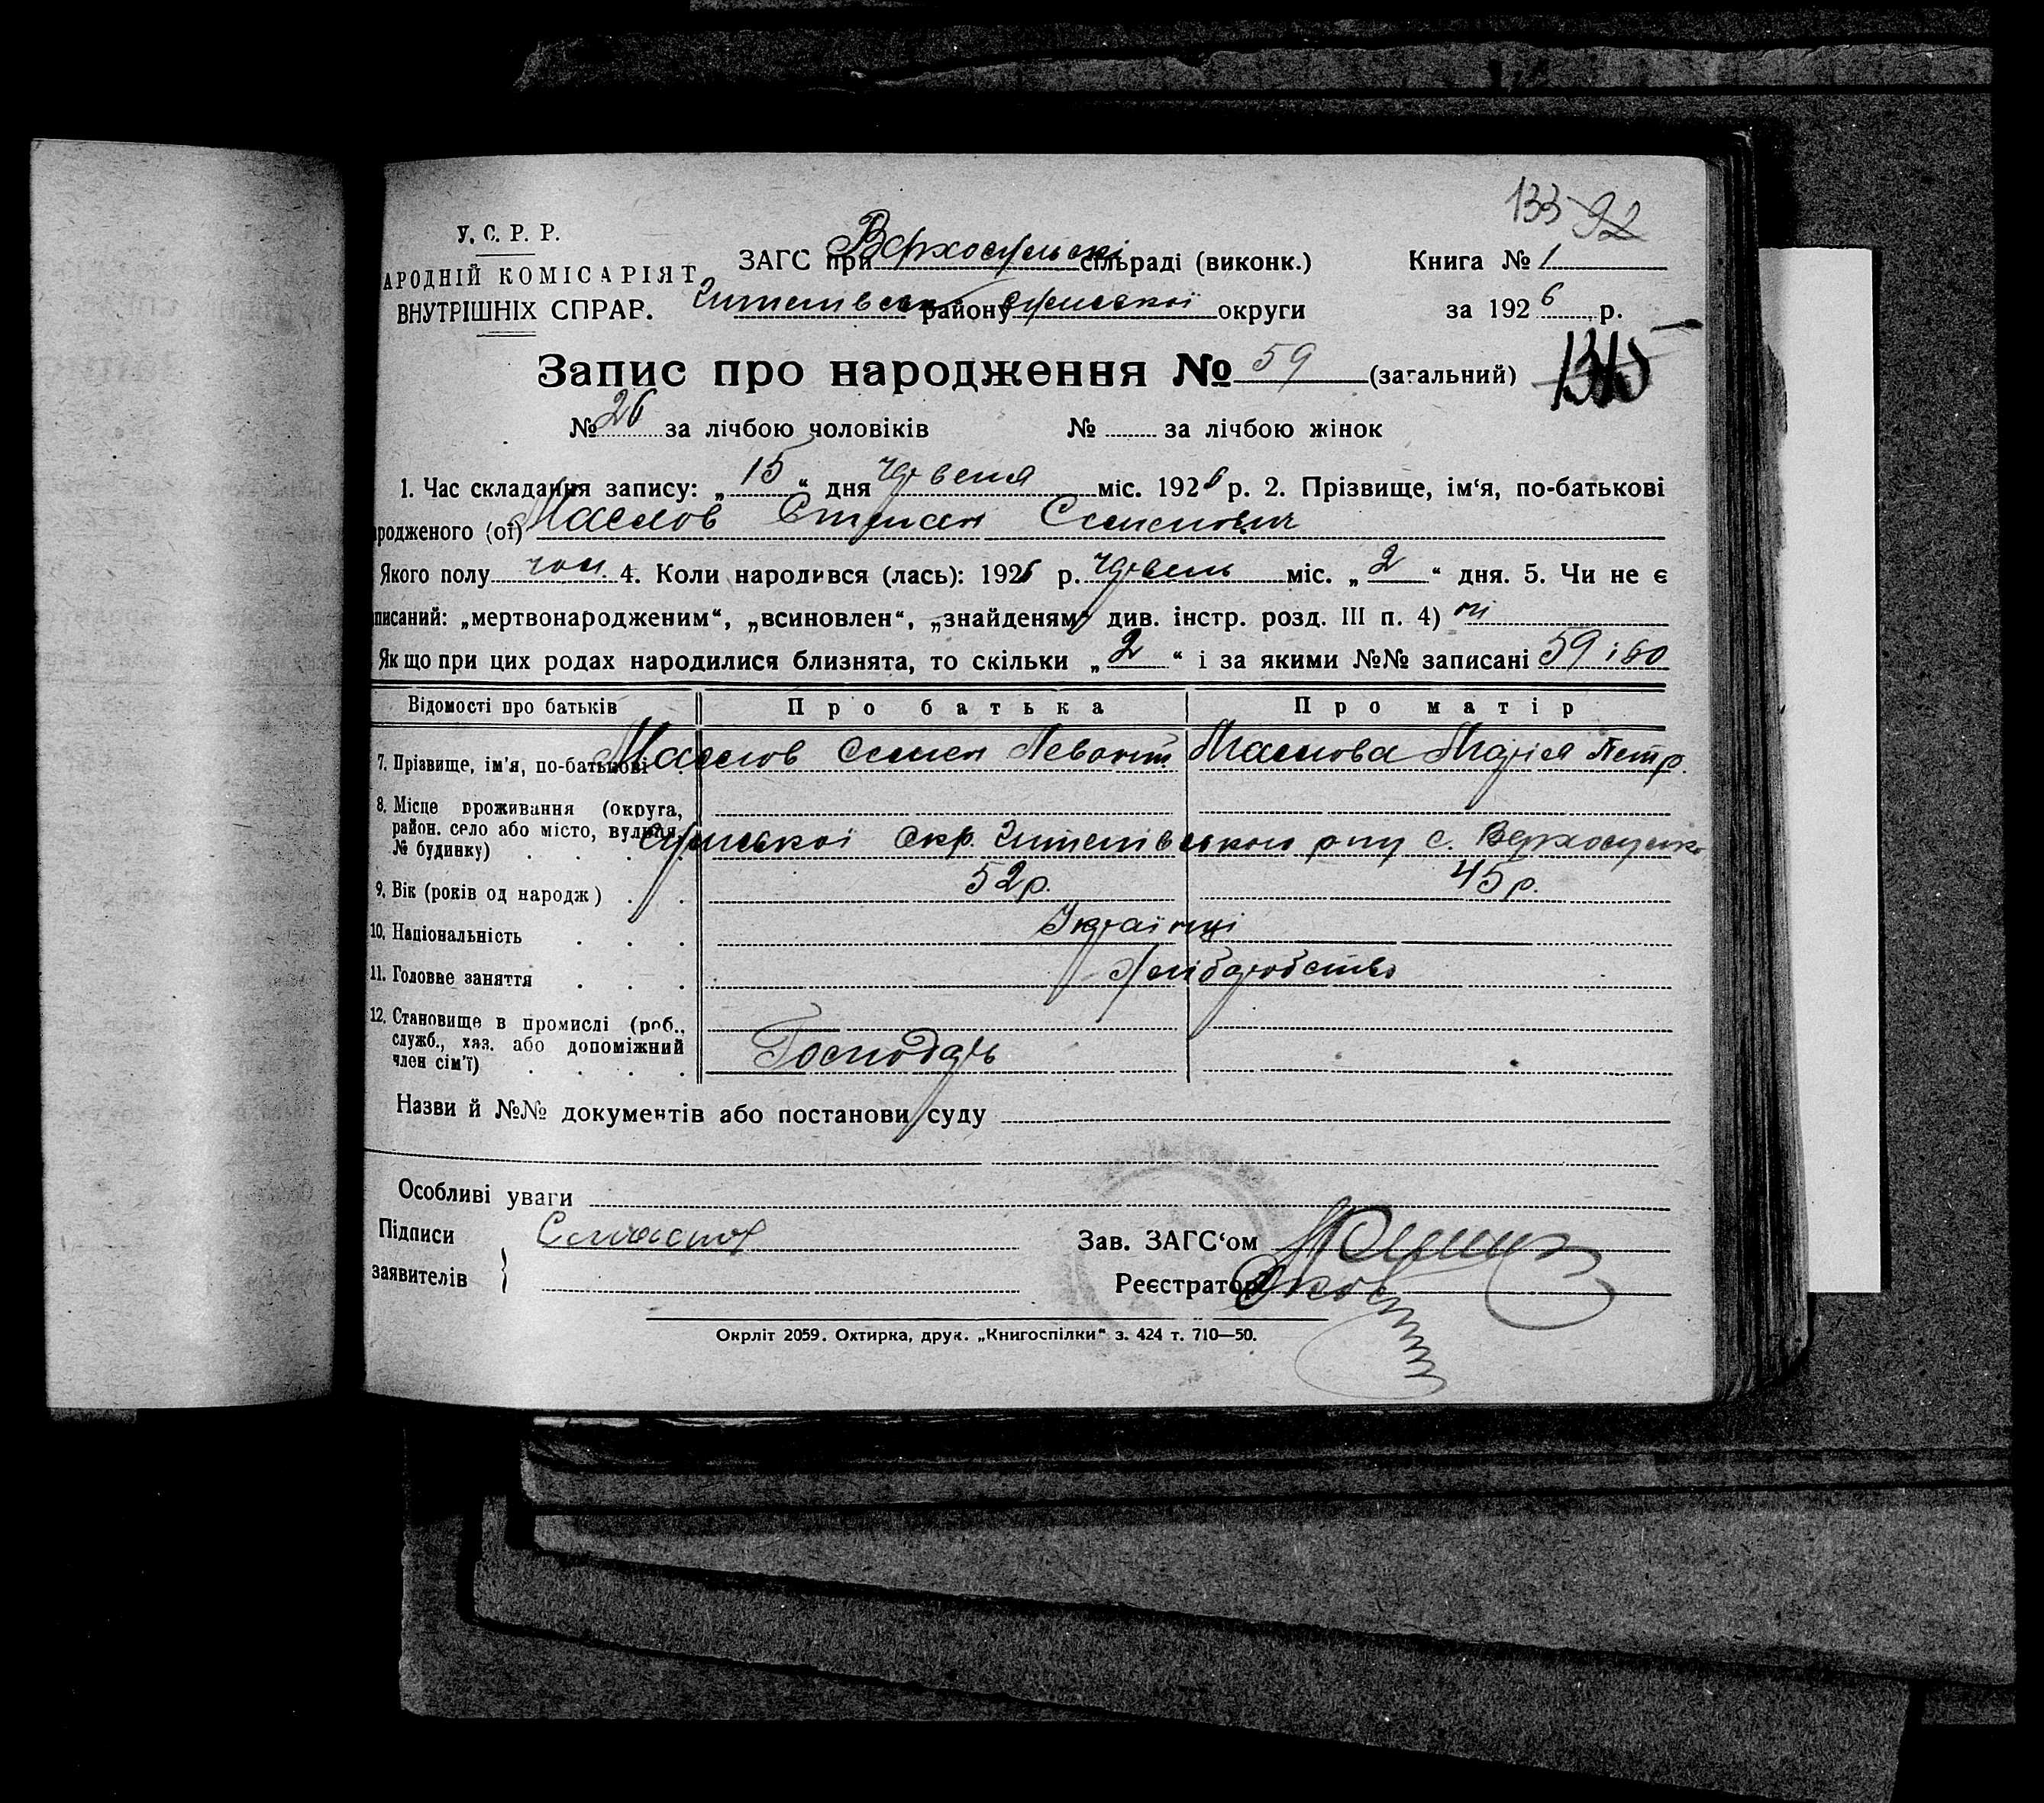 133 92
У. С. Р. Р.
АРОДНІЙ КОМІСАРІЯТ
ВНУТРІШНІХ СПРАВ.
ЗАГС при Верхосульскі сільраді (виконк.)
Штепівськ району Сумської округи
Книга № 1
за 1926 р.
Запис про народження № 59 (загальний)
№ 26 за лічбою чоловіків № за лічбою жінок
1. Час складання запису: „ 15 “ дня Червеня міс. 1926 р. 2. Прізвище, ім‘я, по-батькові
родженого (ої) Маслов Степан Семенович
Якого полу чол. 4. Коли народився (лась): 1926 р. Червень міс. „ 2 “ дня. 5. Чи не є
писаний: „мертвонародженим“, „всиновлен“, „знайденям“ див. інстр. розд. III п. 4) ні
Якщо при цих родах народилися близнята, то скільки „ 2 “ і за якими №№ записані 59 і 60
Відомості про батьків Про батька Про матір
7. Прізвище, ім‘я, по-батькові Маслов Семен Левонт Маслова Марія Петр.
8. Місце проживання (округа,
район. село або місто, вулиця,
№ будинку) Сумської Окр. Штепівського рну с. Верхосулка
9. Вік (років од народж) 52 р. 45 р.
10. Національність Українці
11. Головне заняття Хліборобство
12. Становище в промислі (роб.,
служб., хаз. або допоміжний
член сім‘ї) Господарь
Назви й №№ документів або постанови суду
Особливі уваги
Підписи
заявителів
Зав. ЗАГС‘ом
Реєстратор
Окрліт 2059. Охтирка, друк. „Книгоспілки“ з. 424 т. 710—50.